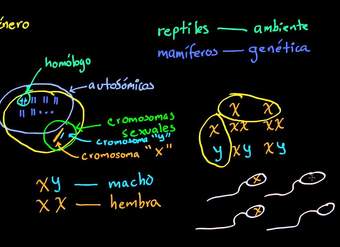 énero
reptiles — ambiente
mamíferos — genética
homólogo
autosómicos
cromosomas
sexuales
cromosoma "y"
cromosoma "x"
x x
x xx xx
y xy xy
xy — macho
xx — hembra
x
x